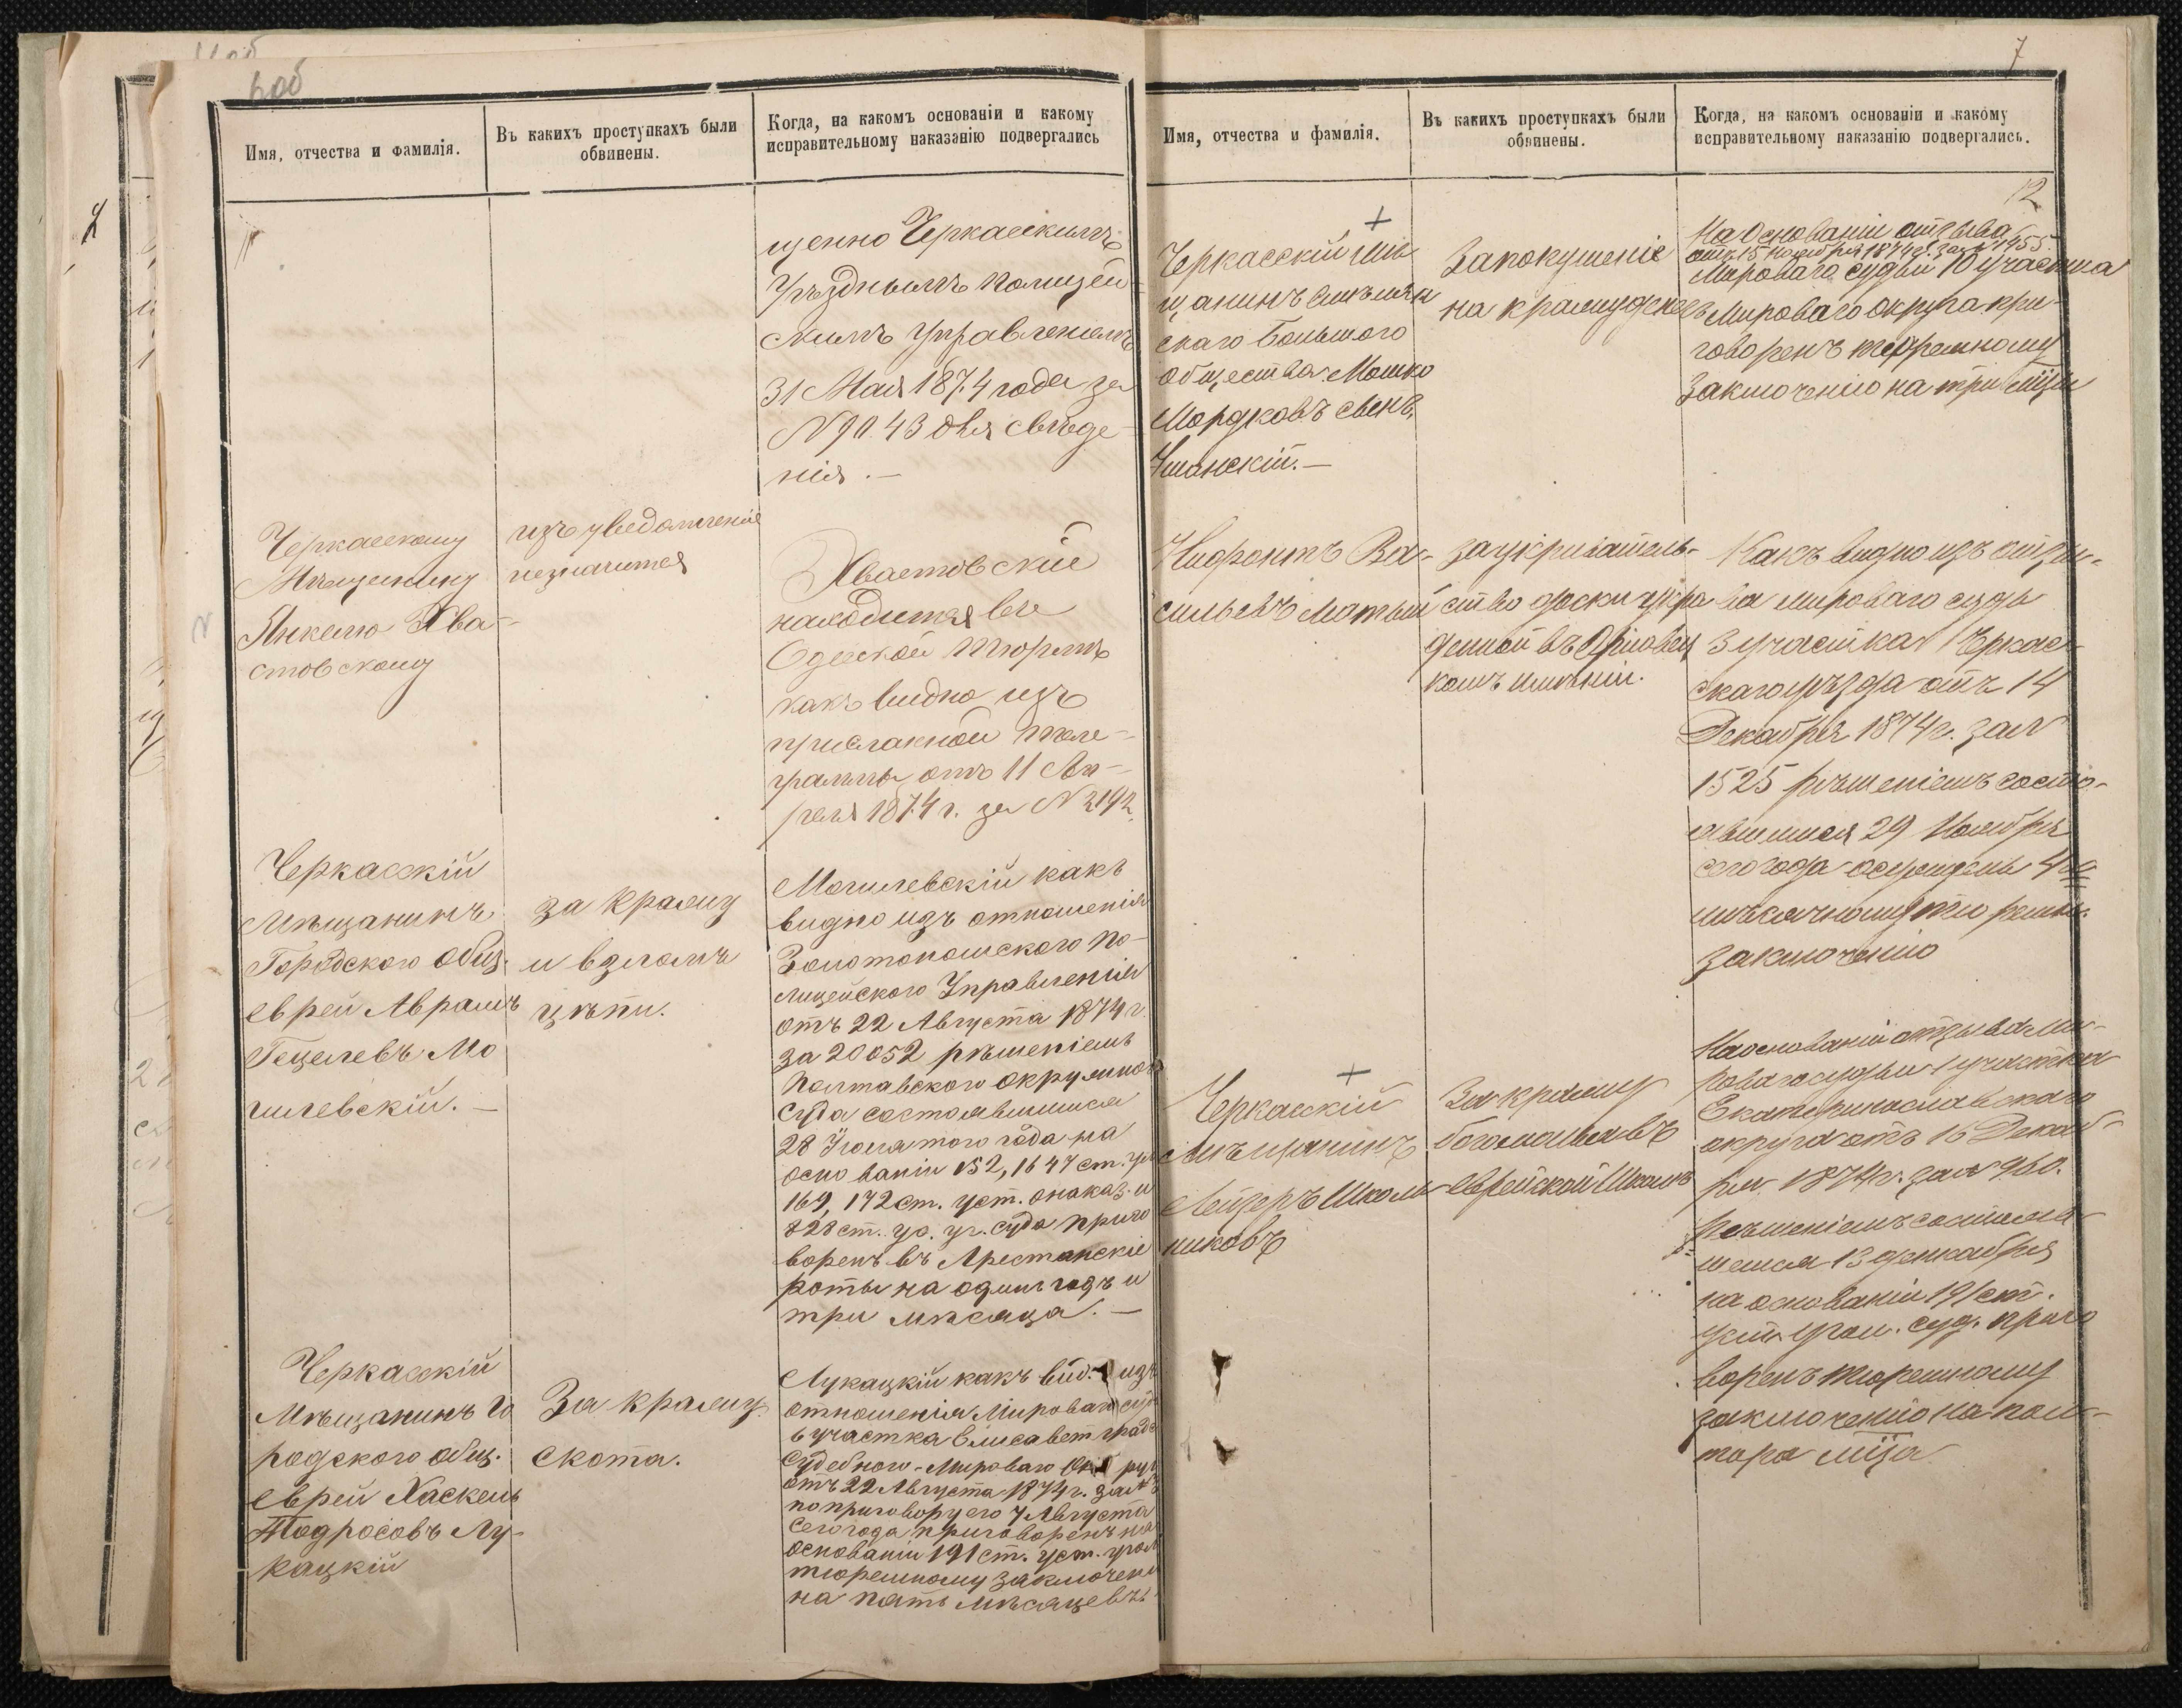 6об
Имя, отчества и фамилія.
Въ какихъ проступкахъ были
обвинены.
Когда, на какомъ основаніи и какому
исправительному наказанію подвергались
щенно Черкаскимъ
Уѣзднымъ Полицей-
скимъ Управленіемъ
31 Мая 1874 года за
N 9043 для свѣде-
нія. —
Черкаскому
Мѣщанину
Янкелю Хва-
стовскому
изъ уведомленія
незначится
Хвастовскій
находится въ
Одеской тюрьмѣ
какъ видно изъ
присланной теле-
граммы отъ 11 Ап-
реля 1874 г. за N 2192.
Черкасскій
Мѣщанинъ
Городского общ.
еврей Аврамъ
Гецелевъ Мо
гилевскій. —
за кражу
и взломъ
цѣпи.
Могилевскій какъ
видно изъ отношенія
Золотоношского По-
лицейского Управленія
отъ 22 Августа 1874 г.
за 20052 рѣшеніемъ
Полтавского окружного
Суда состоявшимся
28 Іюля того года на
осно ваніи 152, 1647 ст. ул
169, 172 ст. уст. онаказ. и
828 ст. ус. уг. суда приго
воренъ въ Арестанскіе
роты на одинъ годъ и
три мѣсяца. —
Черкасскій
Мѣщанинъ Го
родского общ.
еврей Хаскель
Тодросовъ Лу-
кацкій
За кражу
скота.
Лукацкій какъ вид. изъ
отношенія Мироваго судьи
6 участка Елисаветградс
Судебного-Мироваго Округ
отъ 22 Августа 1874 г. за N
по приговору его 7 Августа
сего года приговоренъ на
основаніи 191 ст. уст. угол
тюремному заключен
на пять мѣсяцевъ.
7
Имя, отчества и фамилія.
Въ какихъ проступкахъ были
обвинены.
Когда, на какомъ основаніи и какому
исправительному наказанію подвергались.
12
+
Черкасскій мѣ
щанинъ Смѣлян
скаго Большого
общества Мошко
Мордковъ сынъ
Уманскій. —
Запокушеніе
на кражу
На Основаніи отзыва
отъ 15 Ноября 1874 г. за N 1955.
Мироваго судьи 10 участка
Мироваго округа при
говоренъ тюремному
заключенію на три мѣсяца
Нифонтъ Ва-
сильевъ
заукриватель-
ство доски укра
денной въ
комъ имѣніи.
Какъ видно изъ отзы-
ва мироваго судьи
3 участка Черкас-
скаго уѣзда отъ 14
Декабря 1874 г. за N
1525 рѣшеніемъ состо-
явшимся 29 Ноября
сего года осужденъ 4хъ
мѣсячному тюремн.
заключенію
+
Черкаскій
Мѣщанинъ
Лейзеръ Школь
никовъ
За кражу
богомолья въ
еврейской Школѣ
На основаніи отзыва Ми-
роваго судьи 1 участка
Екатеринославскаго
округа отъ 16 Декаб-
ря 1874 г. за N 960.
Рѣшеніемъ состояв
шемся 13 декабря
на основаніи 191 ст.
уст. угол. суд. приго
воренъ тюремному
заключенію на пол-
тора мѣца